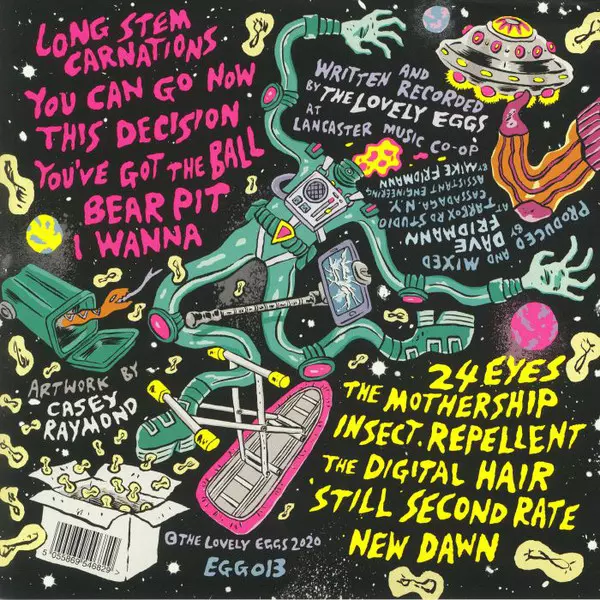 LONG STEM
CARNATIONS
YOU CAN GO NOW
THIS DECISION
YOU'VE GOT THE BALL
BEAR PIT
I WANNA
WRITTEN AND
RECORDED
BY THE LOVELY EGGS
AT
LANCASTER MUSIC CO-OP
PRODUCED AND MIXED
BY DAVE
FRIDMANN
AT TARBOX RD STUDIO
CASSADAGA, N.Y.
ASSISTANT ENGINEERING
BY MIKE FRIDMANN
ARTWORK BY
CASEY
RAYMOND
24 EYES
THE MOTHERSHIP
INSECT REPELLENT
THE DIGITAL HAIR
STILL SECOND RATE
NEW DAWN
5 055869 546829
© THE LOVELY EGGS 2020
EGG013